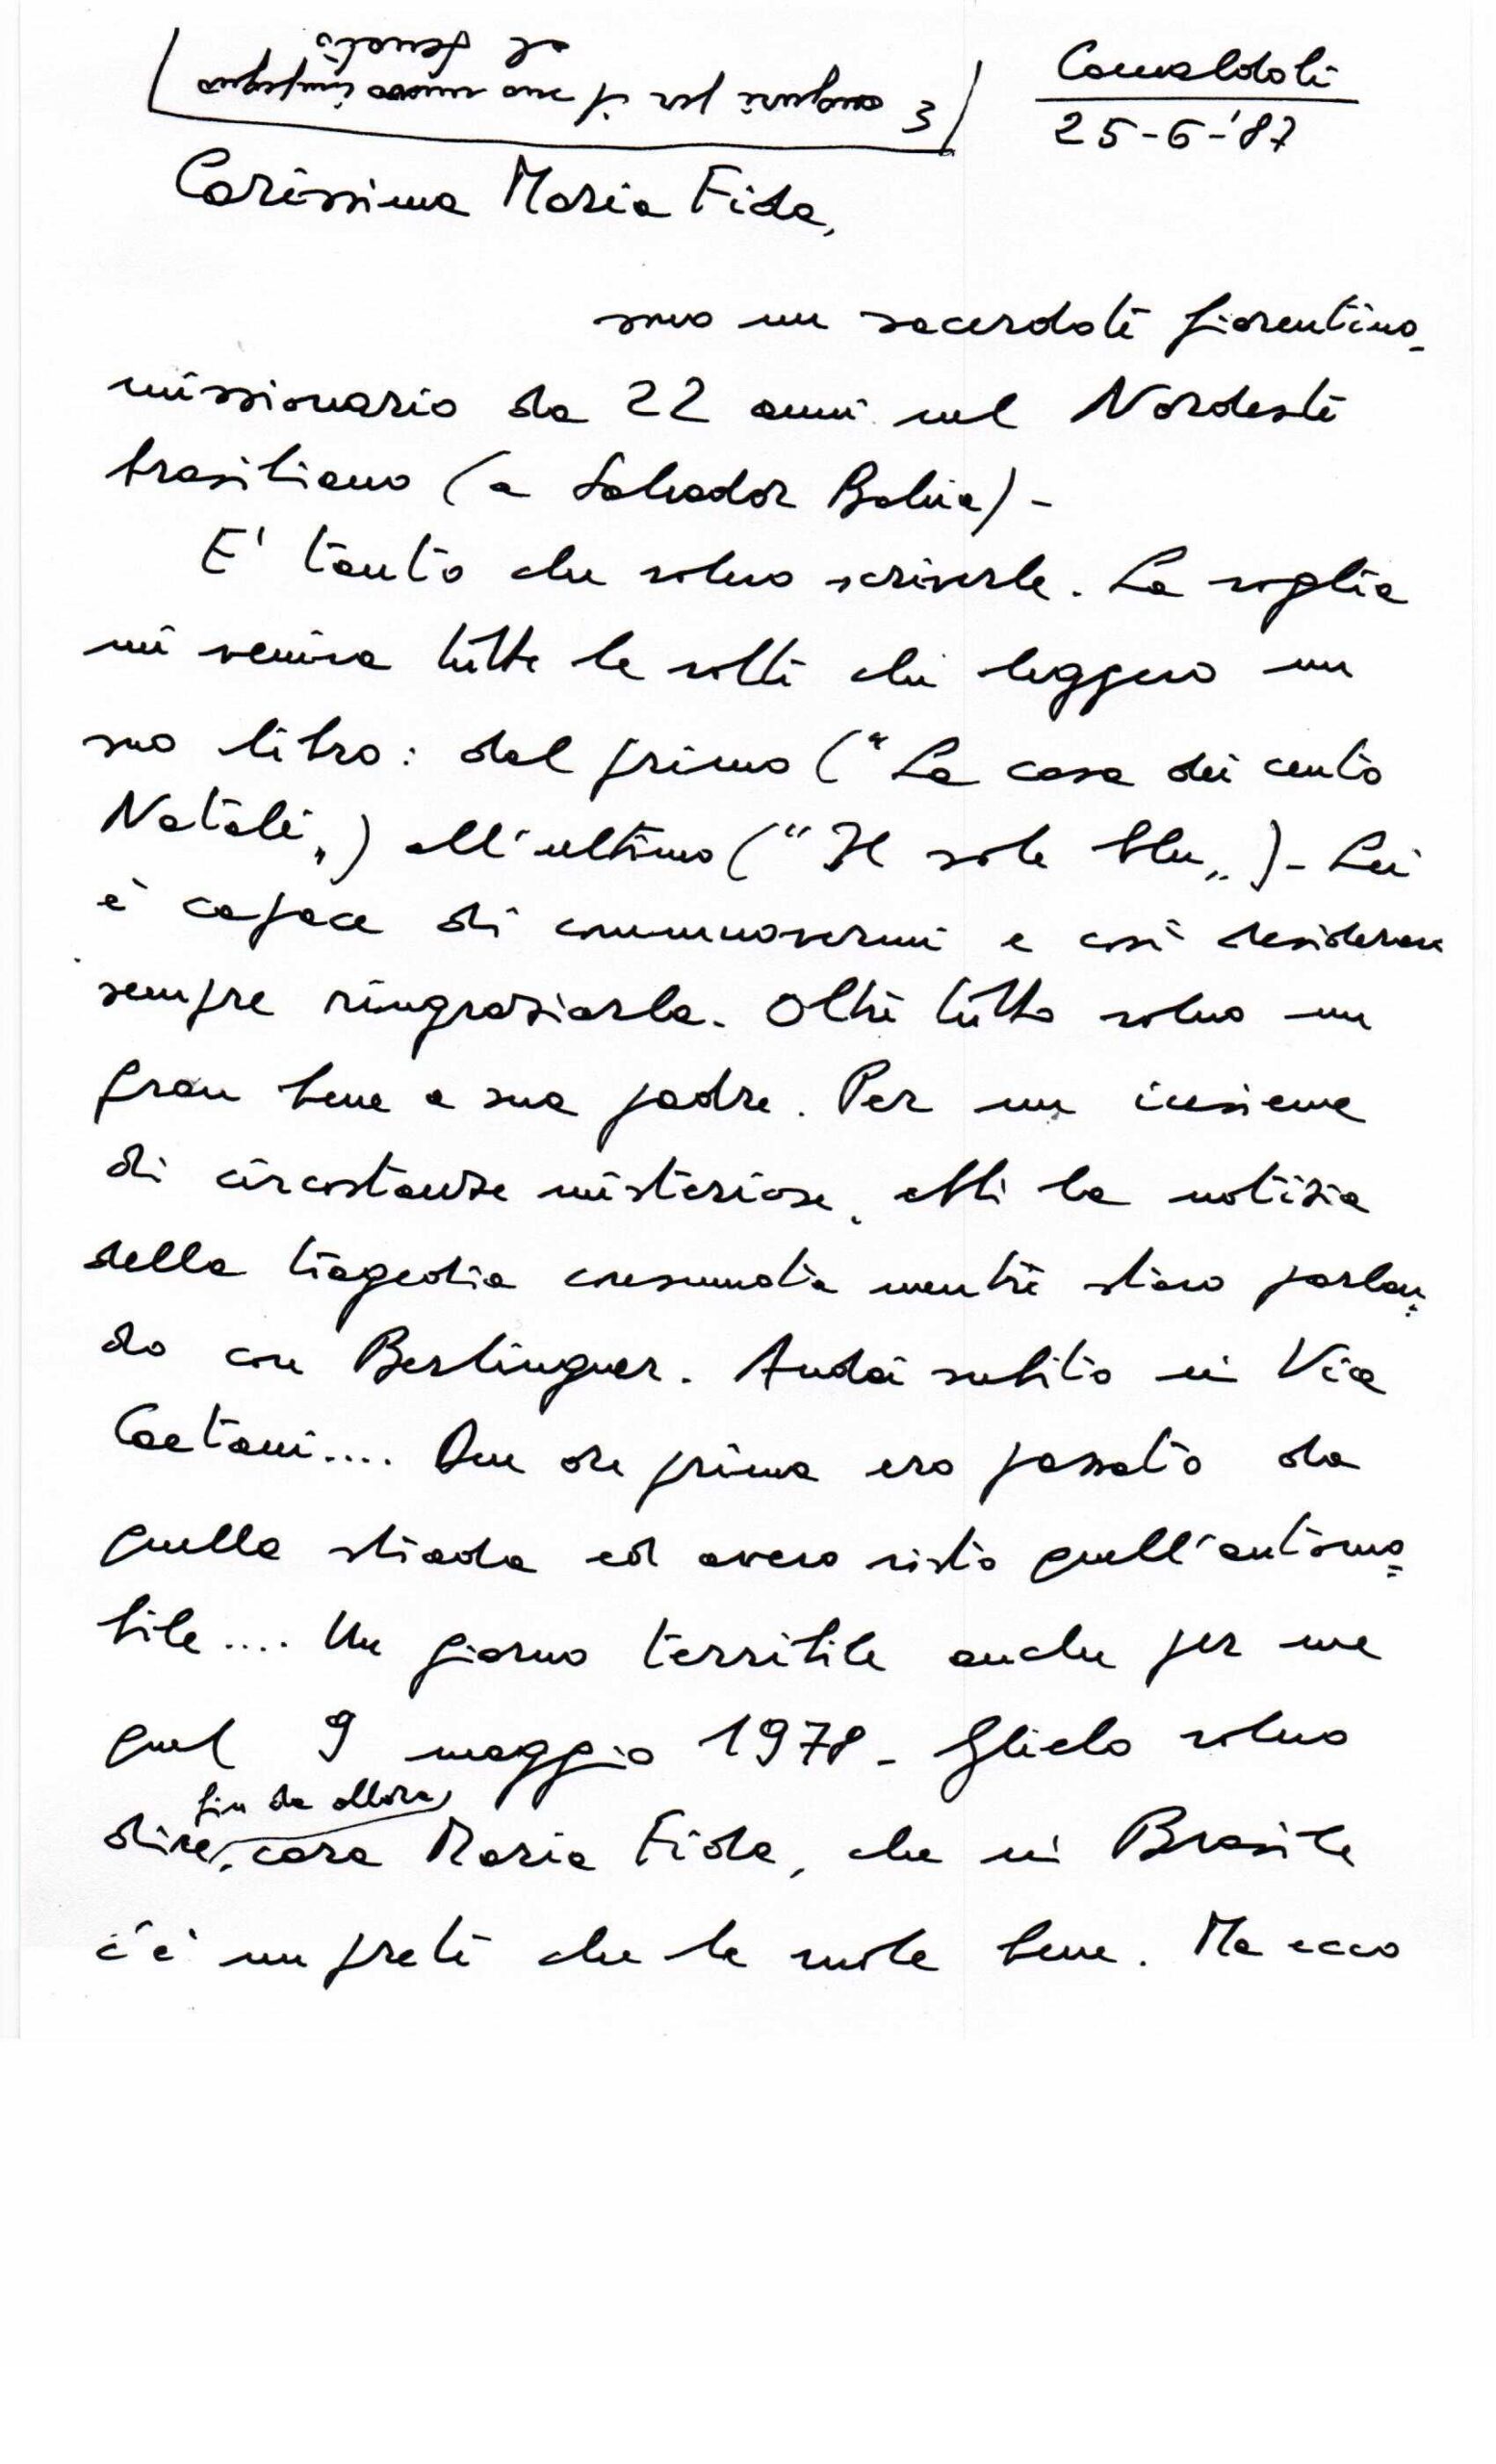 Camaldoli
25-6-'87
Carissima Maria Fida,
sono un sacerdote fiorentino
missionario da 22 anni nel Nordeste
brasiliano (a Salvador Bahia) -
E' tanto che volevo scriverle. La voglia
mi veniva tutte le volte che leggevo un
suo libro: dal primo ("La casa dei cento
Natali") all'ultimo ("Il sole blu") - Lei
è capace di commuovermi e così desideravo
sempre ringraziarla. Oltre tutto volevo un
gran bene a suo padre. Per un insieme
di circostanze misteriose, ebbi la notizia
della tragedia consumata mentre stavo parlan=
do con Berlinguer. Andai subito in Via
Caetani.... Due ore prima ero passato da
quella strada ed avevo visto quell'automo=
bile.... Un giorno terribile anche per me
quel 9 maggio 1978 - Glielo volevo
fin da allora
dire, cara Maria Fida, che in Brasile
c'è un prete che le vuole bene. Ma ecco